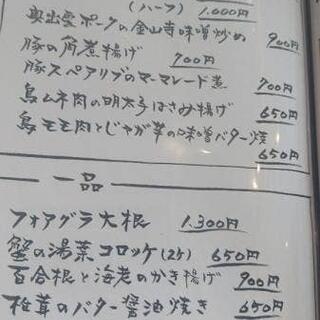 (ハーフ) 1.000円
奥出雲ポークの金山寺味噌炒め 900円
豚の角煮揚げ 700円
豚スペアリブのマーマレード煮 700円
鳥ムネ肉の明太子はさみ揚げ 650円
鳥モモ肉とじゃが芋の味噌バター焼 650円
一品
フォアグラ大根 1.300円
蟹の湯葉コロッケ(2ケ) 650円
百合根と海老のかき揚げ 900円
椎茸のバター醤油焼き 650円